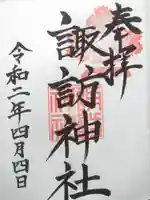 奉拝
諏訪神社
令和二年四月四日